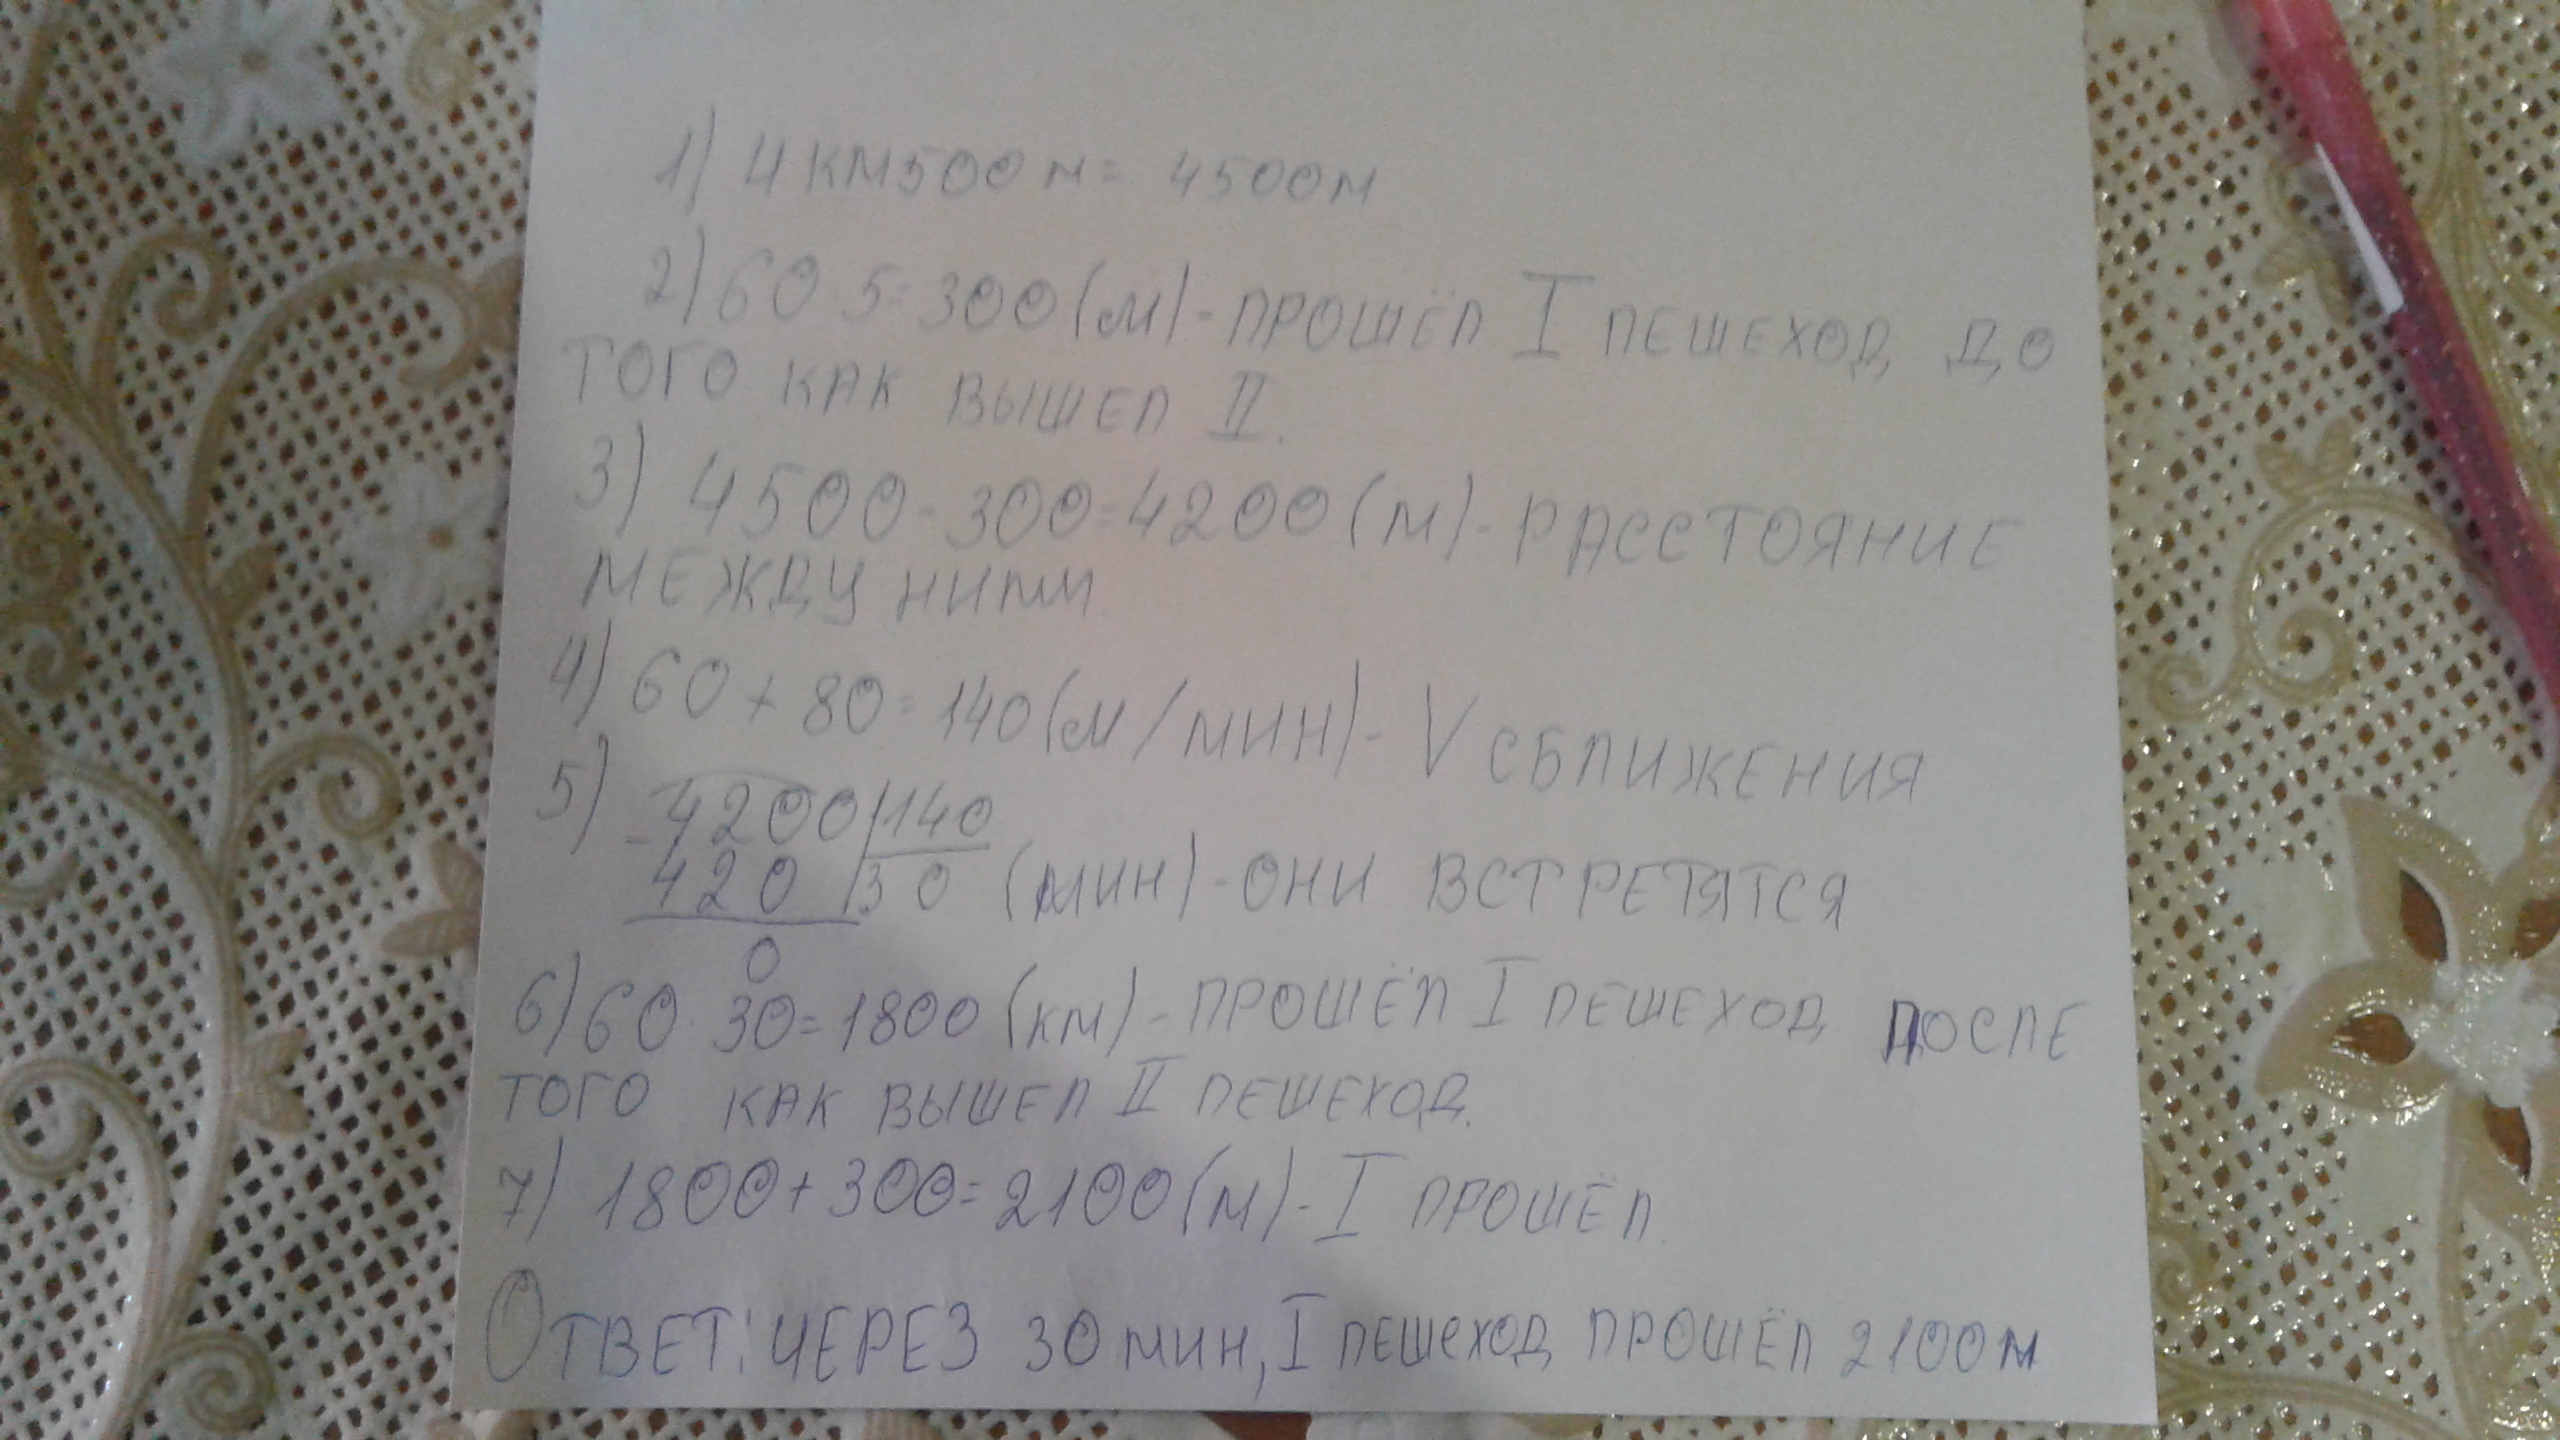 1) 4 КМ 500 м = 4500м
2) 60 · 5 = 300 (м) - ПРОШЁЛ I ПЕШЕХОД ДО
ТОГО КАК ВЫШЕЛ II.
3) 4500 - 300 = 4200 (м) - РАССТОЯНИЕ
МЕЖДУ НИМИ.
4) 60 + 80 = 140 (м/мин) - V СБЛИЖЕНИЯ
5) - 4200 | 140
420 | 30 (мин) - ОНИ ВСТРЕТЯТСЯ
0
6) 60 · 30 = 1800 (км) - ПРОШЁЛ I ПЕШЕХОД ПОСЛЕ
ТОГО КАК ВЫШЕЛ II ПЕШЕХОД.
7) 1800 + 300 = 2100 (м) - I ПРОШЁЛ.
ОТВЕТ: ЧЕРЕЗ 30 МИН, I ПЕШЕХОД ПРОШЁЛ 2100м